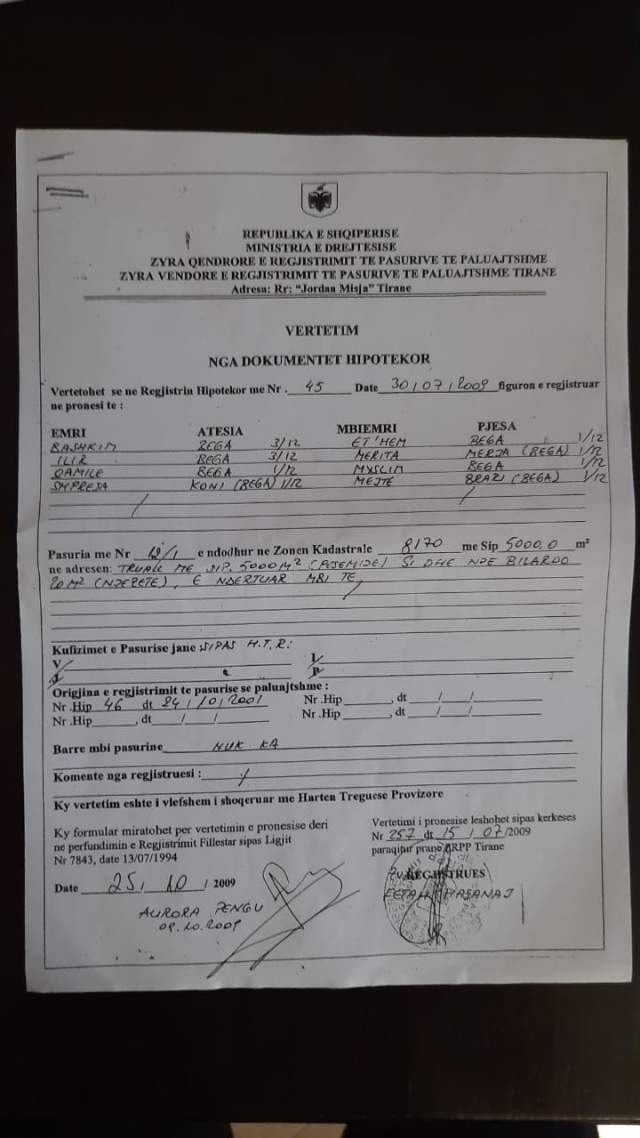 REPUBLIKA E SHQIPERISE
MINISTRIA E DREJTESISE
ZYRA QENDRORE E REGJISTRIMIT TE PASURIVE TE PALUAJTSHME
ZYRA VENDORE E REGJISTRIMIT TE PASURIVE TE PALUAJTSHME TIRANE
Adresa: Rr: "Jordan Misja" Tirane
VERTETIM
NGA DOKUMENTET HIPOTEKOR
Vertetohet se ne Regjistrin Hipotekor me Nr . 45 Date 30/07/2009 figuron e regjistruar
ne pronesi te :
EMRI ATESIA MBIEMRI PJESA
BASHKIM BEGA 3/12 ET'HEM BEGA 1/12
ILIR BEGA 3/12 MERITA MERJA (BEGA) 1/12
QAMILE BEGA 1/12 MYSLIM BEGA 1/12
SHPRESA KONI (BEGA) 1/12 MEJTE BRAZI (BEGA) 1/12
Pasuria me Nr 12/1 e ndodhur ne Zonen Kadastrale 8170 me Sip 5000.0 m²
ne adresen: TRUALL ME SIP. 5000 M² SI DHE NJE BILARDO
20 M² , E NDERTUAR MBI TE
Kufizimet e Pasurise jane : SIPAS H.T.R:
V L
J P
Origjina e regjistrimit te pasurise se paluajtshme :
Nr .Hip 46 dt 24/10/2001 Nr .Hip , dt / /
Nr .Hip , dt / / Nr .Hip , dt / /
Barre mbi pasurine NUK KA
Komente nga regjistruesi : /
Ky vertetim eshte i vlefshem i shoqeruar me Harten Treguese Provizore
Ky formular miratohet per vertetimin e pronesise deri
ne perfundimin e Regjistrimit Fillestar sipas Ligjit
Nr 7843, date 13/07/1994
Vertetimi i pronesise leshohet sipas kerkeses
Nr 257 dt 15 / 07/2009
paraqitur prane ZRPP Tirane
Date 25/10 / 2009
REGJISTRUES
AURORA PENGU
09.10.2009
HASANAJ